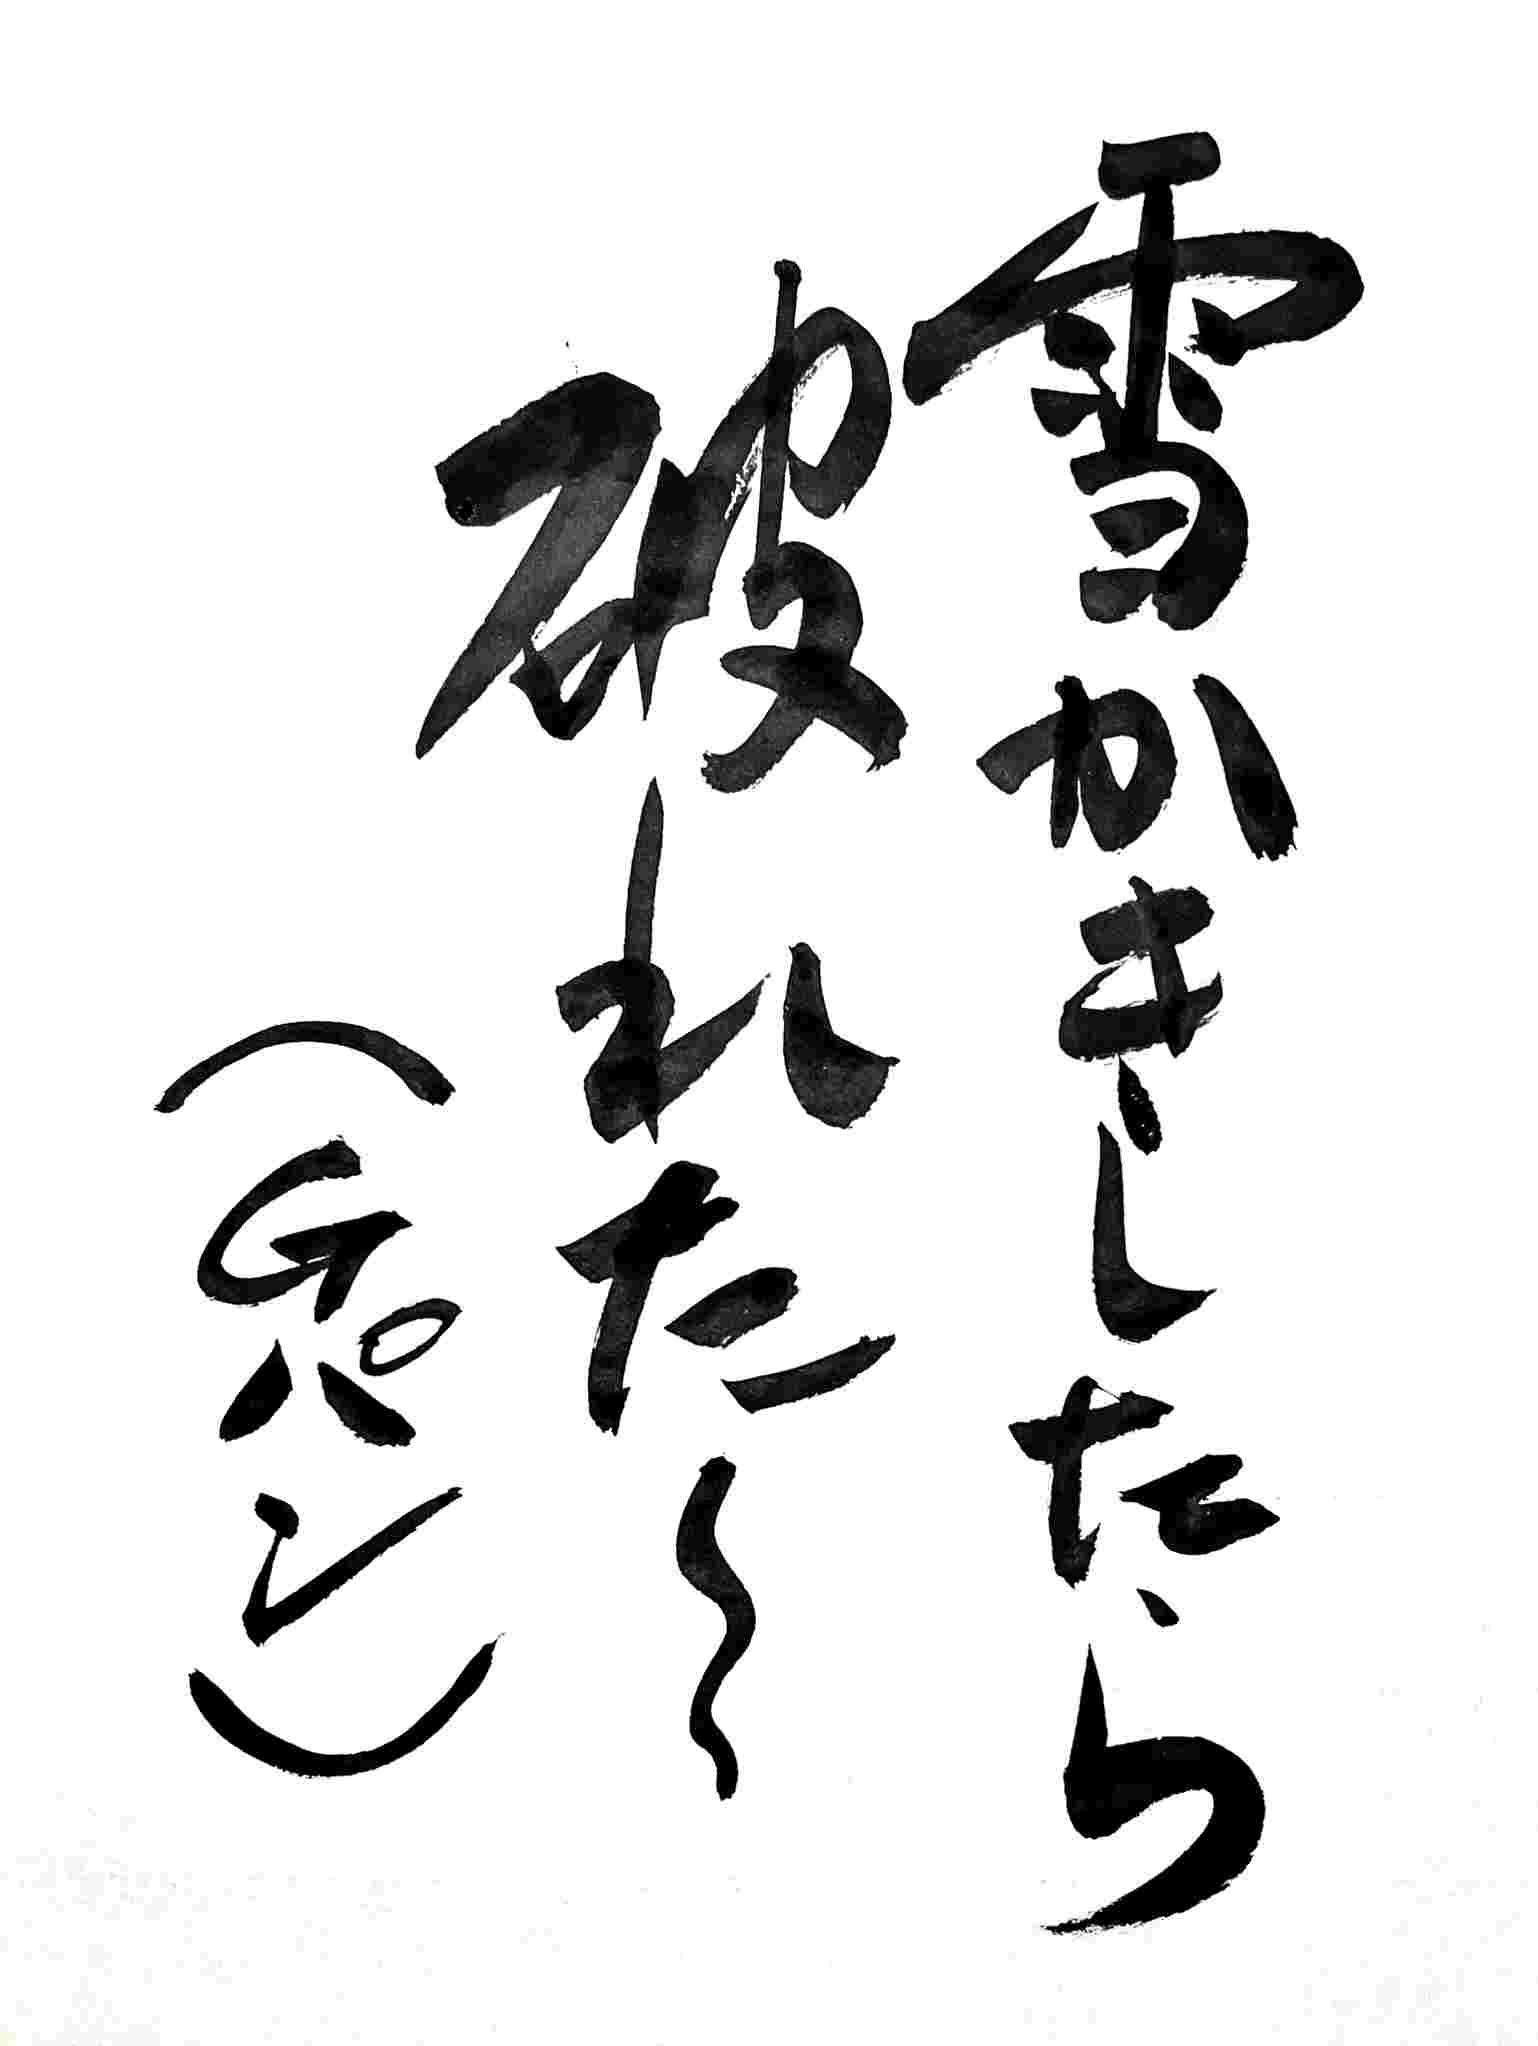 雪かきしたら
破れた〜
（Gパン）